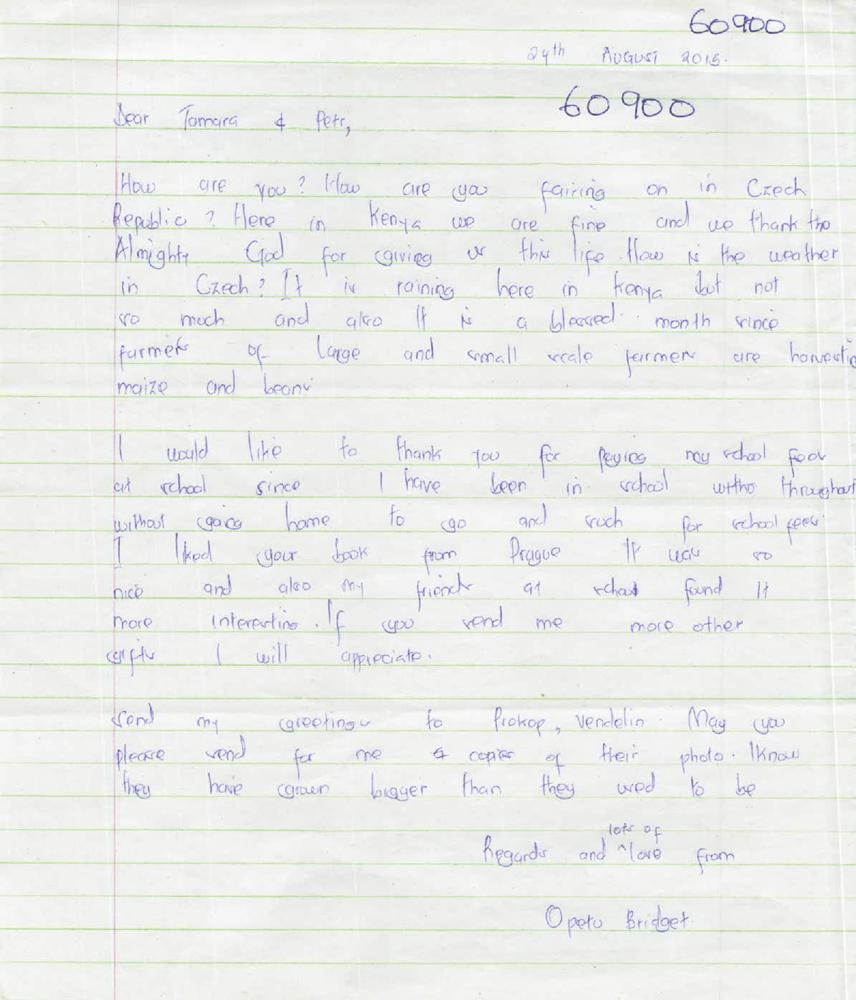 60900
24th AUGUST 2015.
60900
Dear Tamara & Petr,
How are you? How are you fairing on in Czech
Republic? Here in Kenya we are fine and we thank the
Almighty God for giving us this life. How is the weather
in Czech? It is raining here in Kenya but not
so much and also It is a blessed month since
farmers of large and small scale farmers are harvestin
maize and beans
I would like to thank you for paying my school fees
at school since I have been in school witho throughout
without going home to go and such for school fees.
I liked your book from Prague It was so
nice and also my friends at school found It
more interesting. If you send me more other
gifts I will appreciate.
Send my greetings to Prokop, Vendelin. May you
please send for me copies of their photo. I know
they have grown bigger than they used to be
lots of
Regards and ^love from
Opetu Bridget.